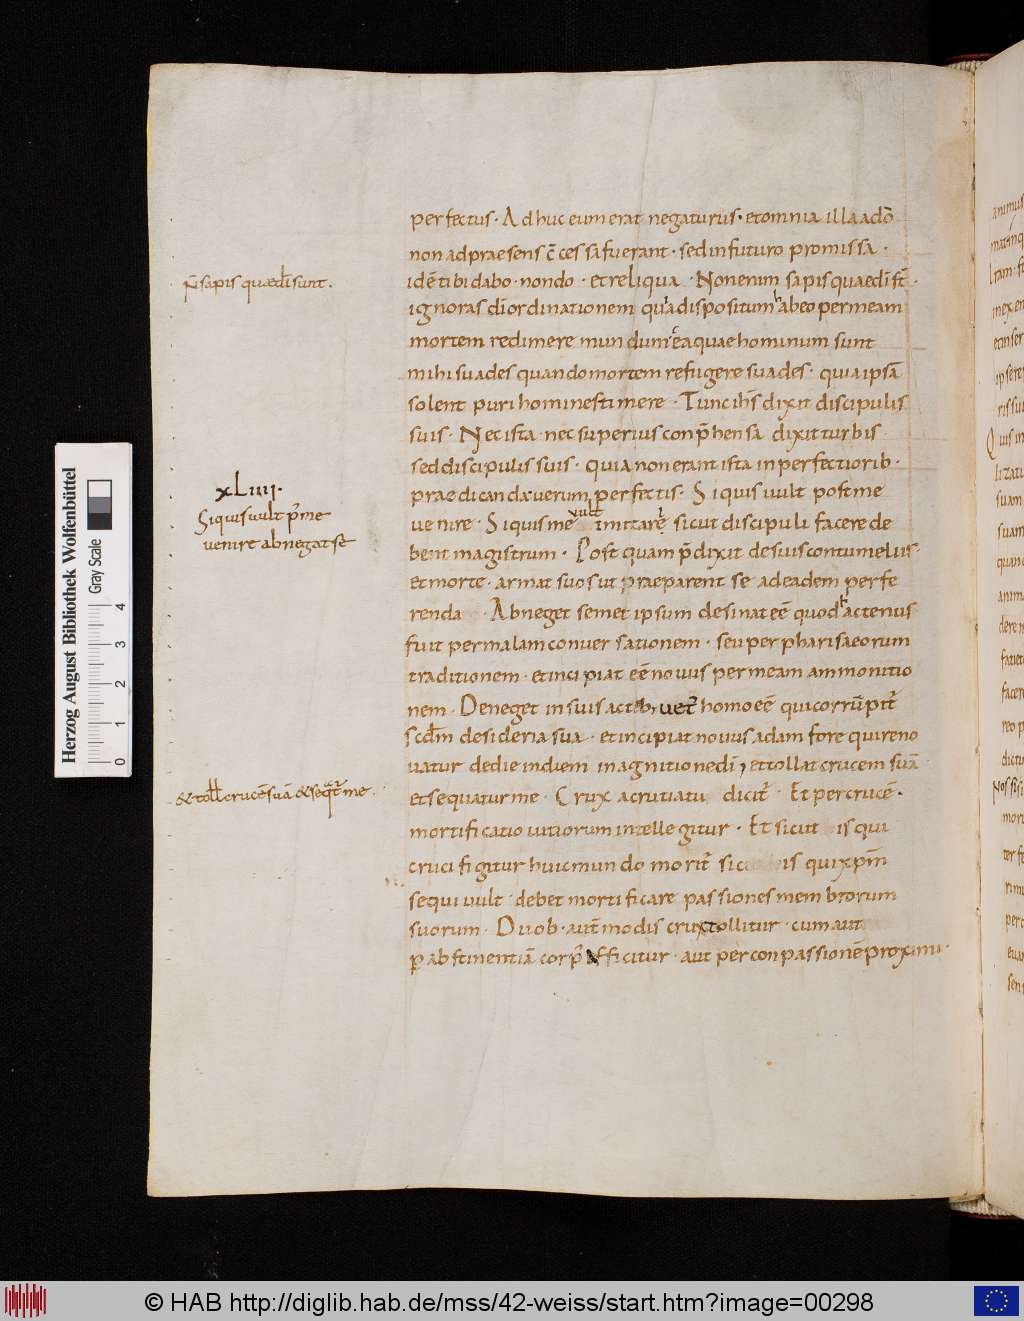 perfectus · Adhuc eum erat negaturus · et omnia illa a dño
non ad praesens c̄cessa fuerant · sed in futuro promissa ·
idē tibi dabo · nondo · et reliqua · Non enim sapis quae di sī ·
p̄ sapis quae di sunt .
ignoras di ordinationem qua dispositum habeo per meam
mortem redimere mundum ea quae hominum sunt
mihi suades quando mortem refugere suades · quia ipsā
solent puri homines timere · Tunc ihs dixit discipulis
suis · Nec ista nec superius conp̄hensa dixit turbis
sed discipulis suis · quia non erant ista inperfectiorib ·
praedicanda verum perfectis · Si quis vult post me
xLiiii ·
Si quis vult p̄ me
venire abneget se
venire · Si quis me vult imitare sicut discipuli facere de
bent magistrum · Post quam p̄dixit de suis contumeliis ·
et morte · armat suos ut praeparent se ad eadem perfe
renda Abneget semet ipsum desinat eē quod hactenus
fuit per malam conversationem · seu per pharisaeorum
traditionem · et incipiat eē novus per meam ammonitio
nem · Deneget in suis actib; vet̄ homo eē qui corrūpit̄
scdm desideria sua · et incipiat novus adam fore qui reno
vatur de die in diem in agnitione di , et tollat crucem suā
& toll crucē suā & seqt̄ me .
et sequatur me · Crux a cruciatu dicit̄ · Et per crucē ·
mortificatio vitiorum intellegitur · Et sicut is qui
crucifigitur huic mundo morit̄ sic is qui xpm
sequi vult debet mortificare passiones membrorum
suorum · Duob · aut̄ modis crux tollitur · cum aut
p abstinentiā corp̄ efficitur · aut per conpassionē proximi ·
Herzog August Bibliothek Wolfenbüttel
Gray Scale
0 1 2 3 4
© HAB http://diglib.hab.de/mss/42-weiss/start.htm?image=00298